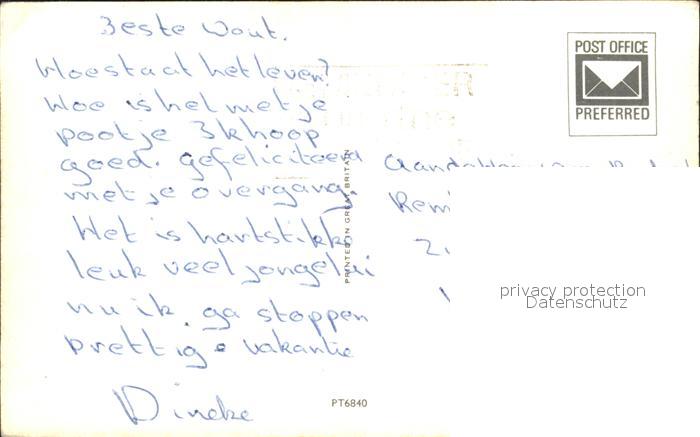 Beste Wout.
Hoe staat het leven?
Hoe is het met je
pootje Ik hoop
goed. Gefeliciteerd
met je overgang.
Het is hartstikke
leuk veel jongelui
nu ik ga stoppen
prettige vakantie
Dineke
POST OFFICE
PREFERRED
PRINTED IN GREAT BRITAIN
PT6840
privacy protection
Datenschutz